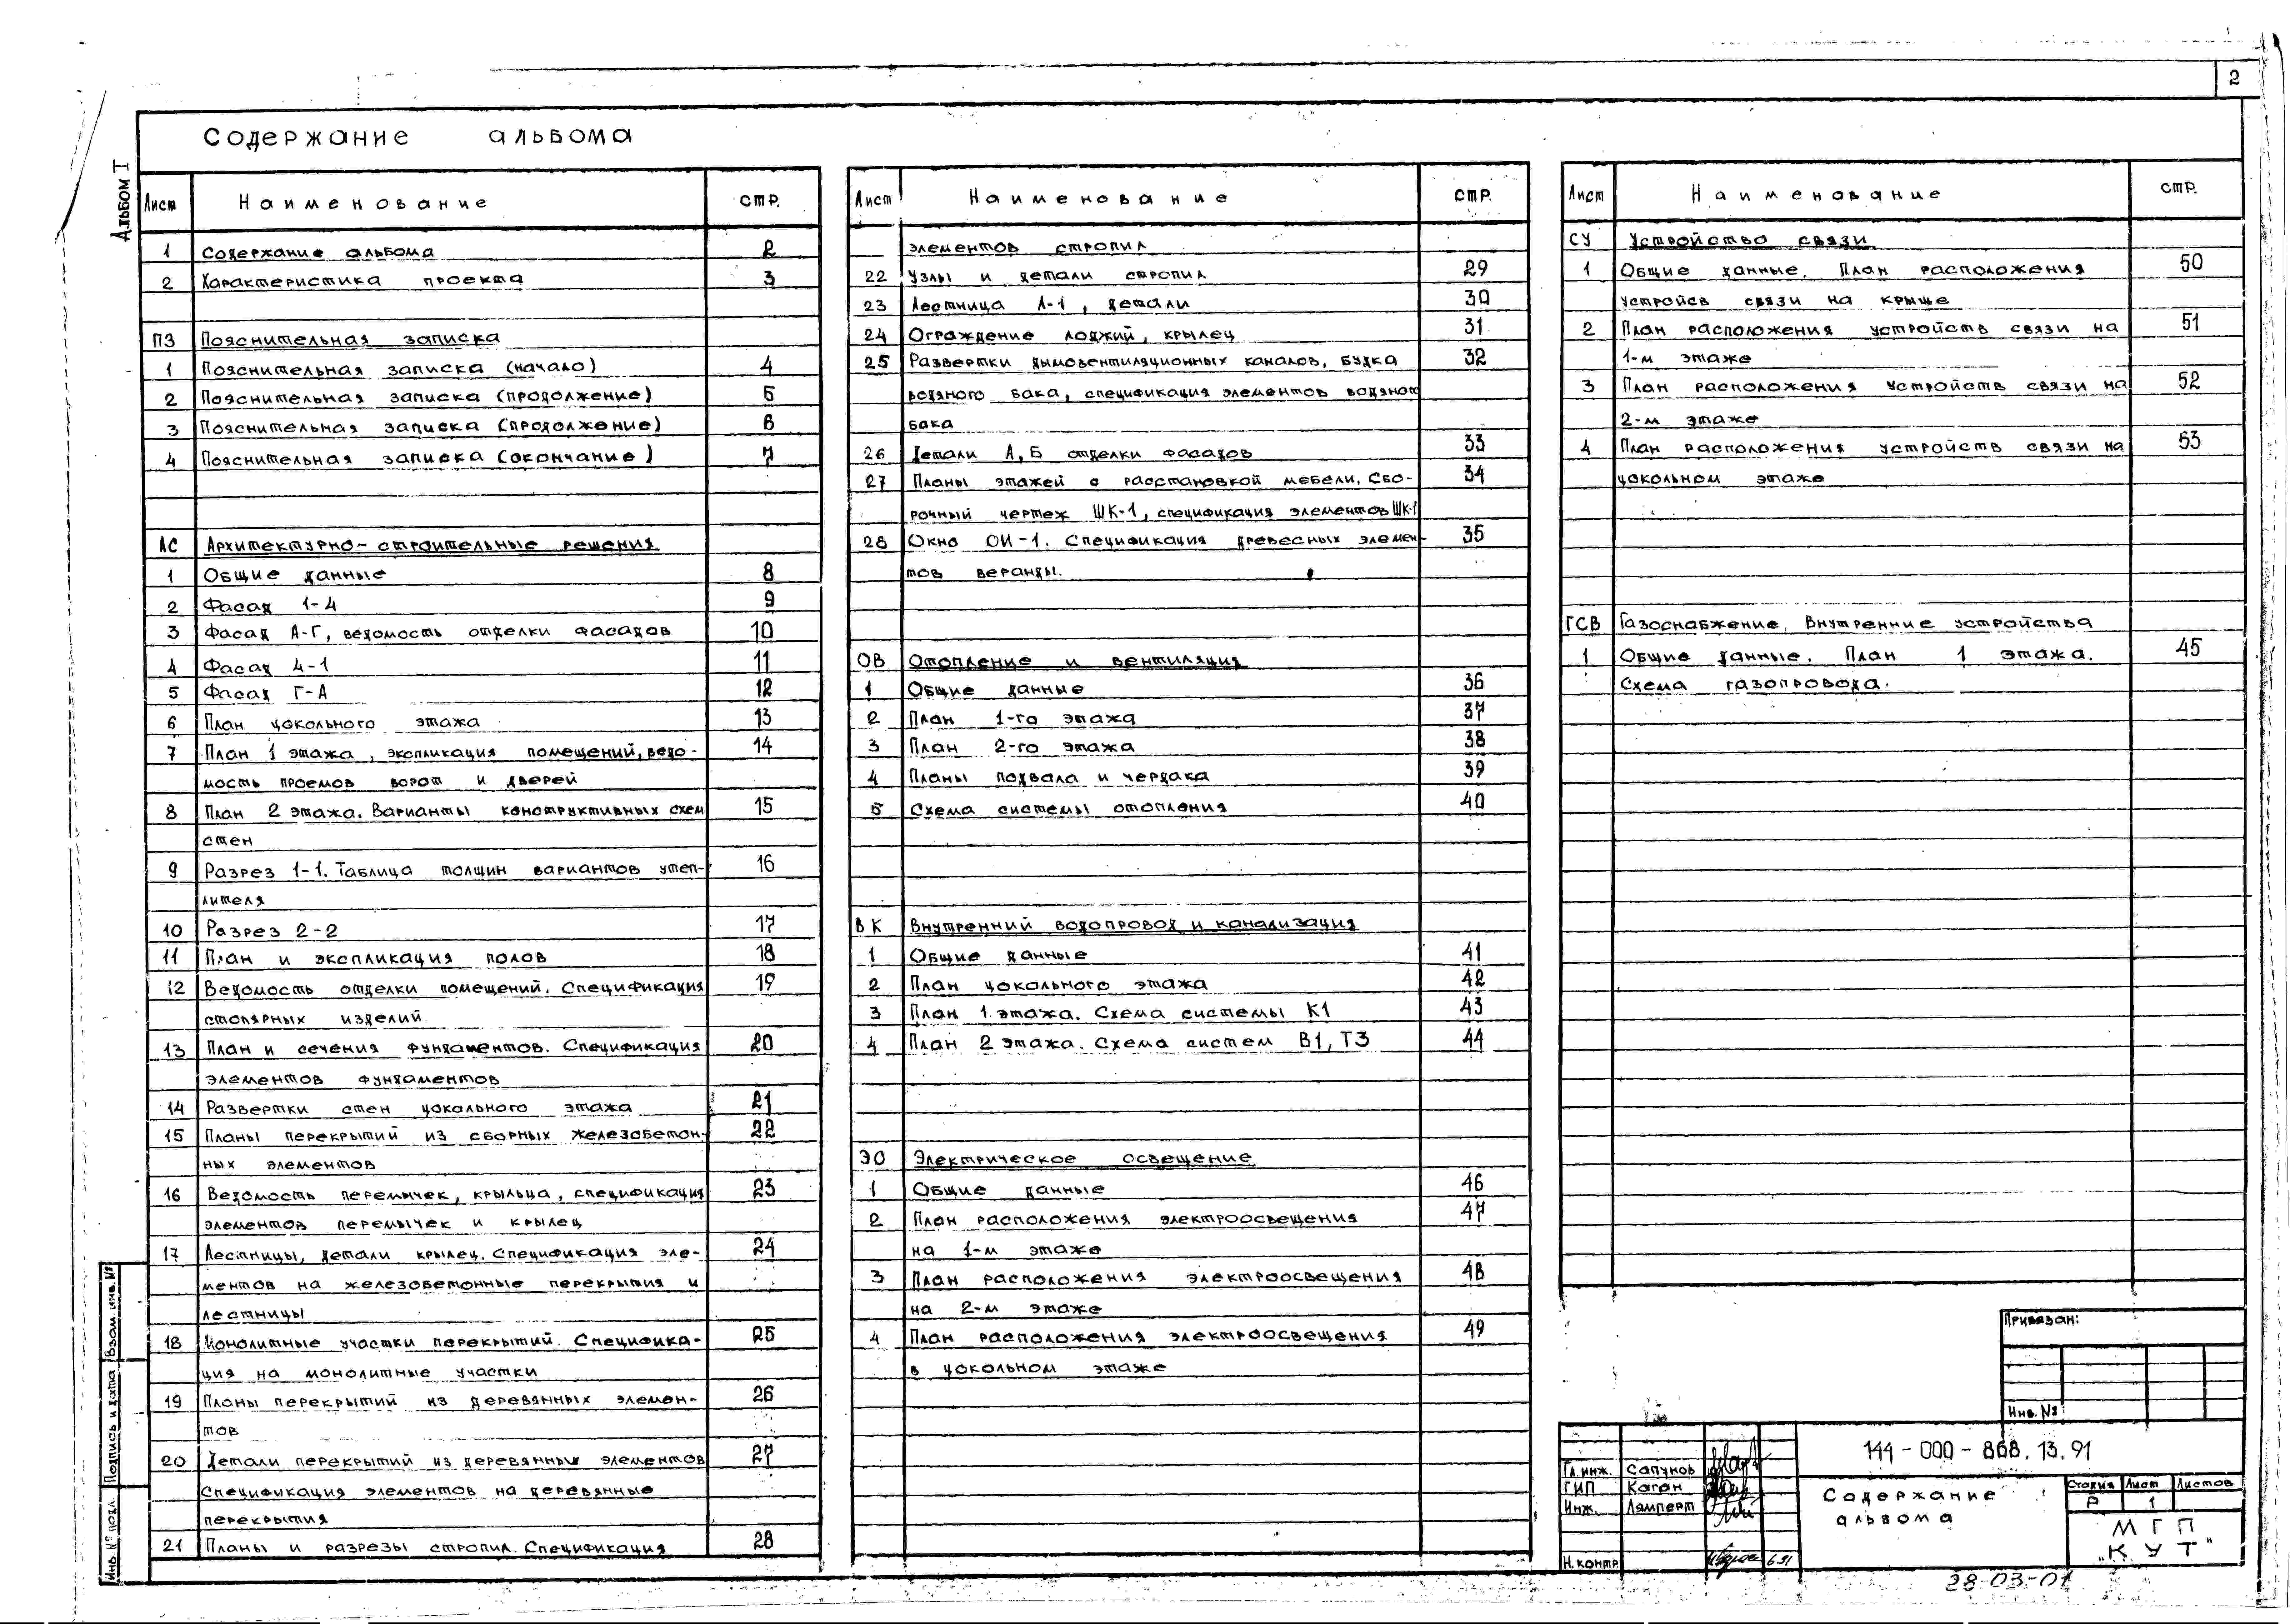 2
Содержание альбома
Альбом I
Лист Наименование стр.
1 Содержание альбома 2
2 Характеристика проекта 3
ПЗ Пояснительная записка
1 Пояснительная записка (начало) 4
2 Пояснительная записка (продолжение) 5
3 Пояснительная записка (продолжение) 6
4 Пояснительная записка (окончание) 7
АС Архитектурно-строительные решения
1 Общие данные 8
2 Фасад 1-4 9
3 Фасад А-Г, ведомость отделки фасадов 10
4 Фасад 4-1 11
5 Фасад Г-А 12
6 План цокольного этажа 13
7 План 1 этажа, экспликация помещений, ведо- 14
мость проемов ворот и дверей
8 План 2 этажа. Варианты конструктивных схем 15
стен
9 Разрез 1-1. Таблица толщин вариантов утеп- 16
лителя
10 Разрез 2-2 17
11 План и экспликация полов 18
12 Ведомость отделки помещений. Спецификация 19
столярных изделий
13 План и сечения фундаментов. Спецификация 20
элементов фундаментов
14 Развертки стен цокольного этажа 21
15 Планы перекрытий из сборных железобетон- 22
ных элементов
16 Ведомость перемычек, крыльца, спецификация 23
элементов перемычек и крылец
17 Лестницы, детали крылец. Спецификация эле- 24
ментов на железобетонные перекрытия и
лестницы
18 Монолитные участки перекрытий. Специфика- 25
ция на монолитные участки
19 Планы перекрытий из деревянных элемен- 26
тов
20 Детали перекрытий из деревянных элементов 27
Спецификация элементов на деревянные
перекрытия
21 Планы и разрезы стропил. Спецификация 28
Лист Наименование стр.
элементов стропил
22 Узлы и детали стропил 29
23 Лестница Л-1, детали 30
24 Ограждение лоджий, крылец 31
25 Развертки дымовентиляционных каналов, будка 32
водяного бака, спецификация элементов водяног
бака
26 Детали А, Б отделки фасадов 33
27 Планы этажей с расстановкой мебели. Сбо- 34
рочный чертеж ШК-1, спецификация элементов ШК-1
28 Окно ОИ-1. Спецификация древесных элемен- 35
тов веранды.
ОВ Отопление и вентиляция
1 Общие данные 36
2 План 1-го этажа 37
3 План 2-го этажа 38
4 Планы подвала и чердака 39
5 Схема системы отопления 40
ВК Внутренний водопровод и канализация
1 Общие данные 41
2 План цокольного этажа 42
3 План 1 этажа. Схема системы К1 43
4 План 2 этажа. Схема систем В1, Т3 44
ЭО Электрическое освещение
1 Общие данные 46
2 План расположения электроосвещения 47
на 1-м этаже
3 План расположения электроосвещения 48
на 2-м этаже
4 План расположения электроосвещения 49
в цокольном этаже
Лист Наименование стр.
СУ Устройство связи
1 Общие данные. План расположения 50
устройсв связи на крыше
2 План расположения устройств связи на 51
1-м этаже
3 План расположения устройств связи на 52
2-м этаже
4 План расположения устройств связи на 53
цокольном этаже
ГСВ Газоснабжение. Внутренние устройства
1 Общие данные. План 1 этажа. 45
Схема газопровода.
Привязан:
Инв. №
144-000-868.13.91
Гл. инж. Сапунов
ГИП Каган
Инж. Ламперт
Н. контр. 6.91
Содержание
альбома
Стадия Лист Листов
Р 1
МГП
"КУТ"
28-03-01
Взам. инв. №
Подпись и дата
Инв. № подл.